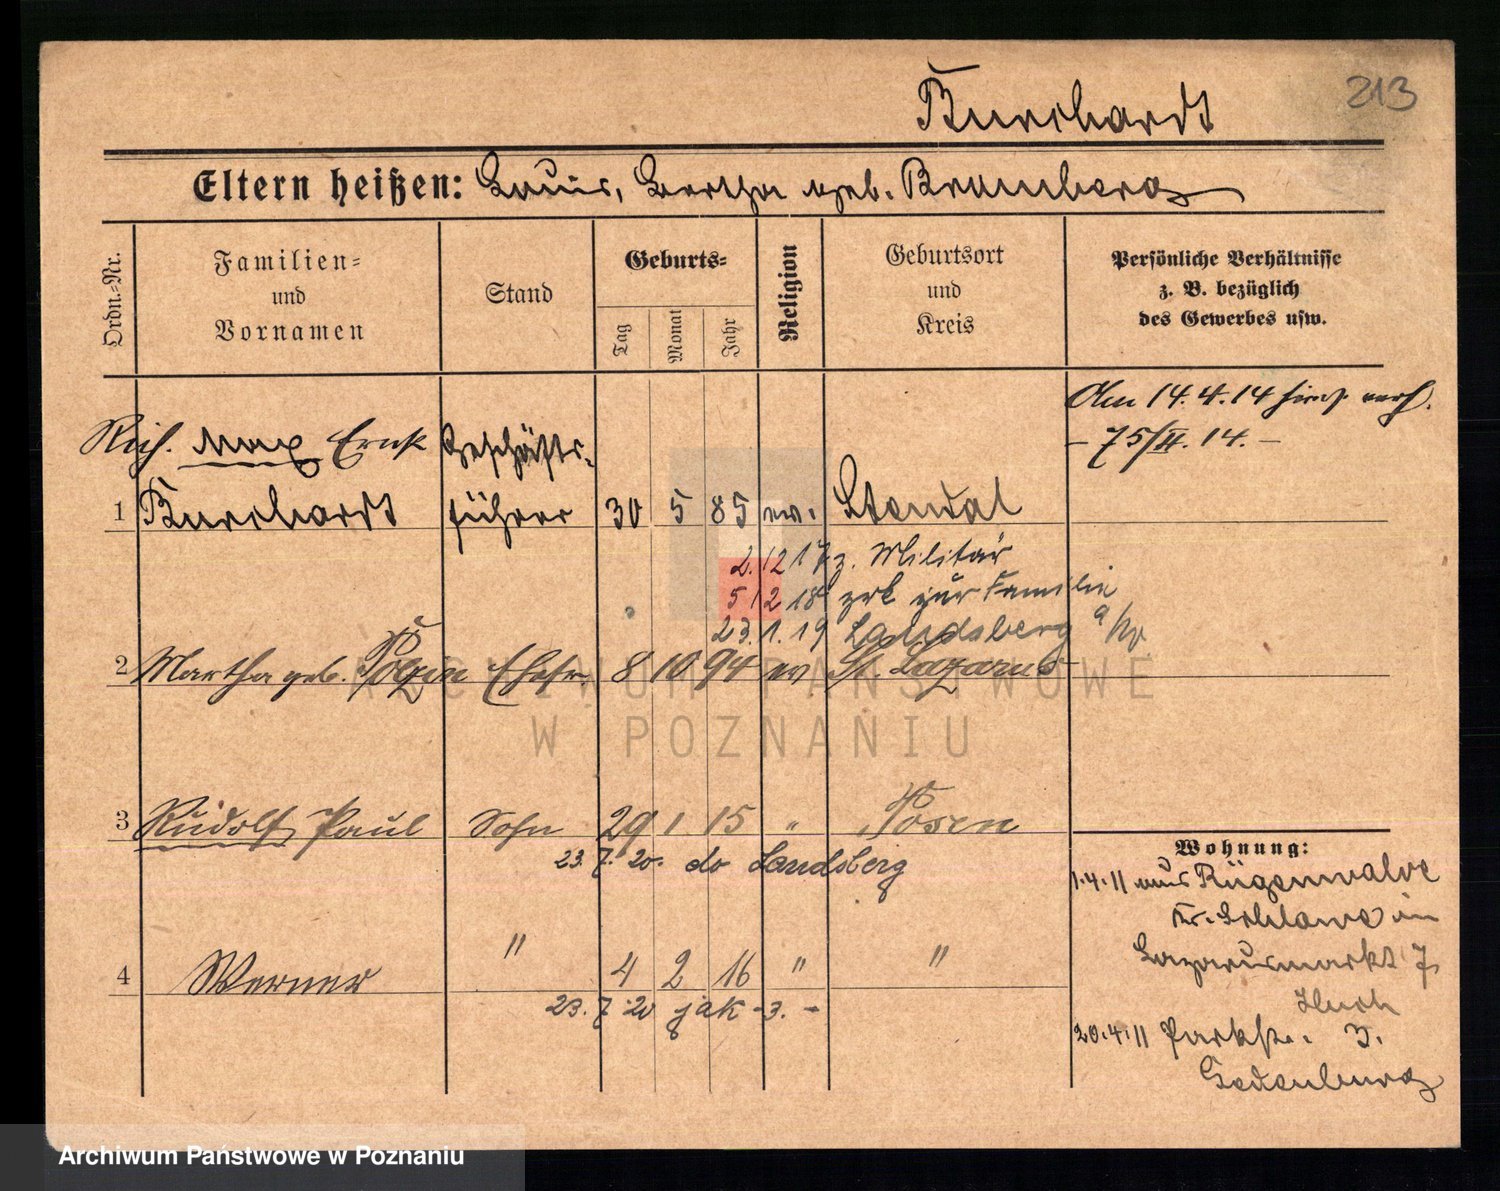 213
Burchardt
Eltern heißen: Louis, Bertha geb. Bromberg
Ordn.-Nr.
Familien-
und
Vornamen
Stand
Geburts-
Tag
Monat
Jahr
Religion
Geburtsort
und
Kreis
Persönliche Verhältnisse
z. B. bezüglich
des Gewerbes usw.
Am 14.4.14 hier verh.
- 75/II. 14. -
Rich. Max Ernst Geschäfts-
1 Burchardt führer 30 5 85 ev. Stendal
2.12 17 z. Militär
5 12 18 zrk zur Familie
23.1.19 Landsberg a/W.
2 Martha geb. Polzin Ehefr. 8 10 94 ev St. Lazarus
3 Rudolf Paul Sohn 29 1 15 " Posen
23.7.20. do Landsberg
4 Werner " 4 2 16 " "
23.7.20 jak - 3. -
Wohnung:
1.4.11 aus Rügenwalde
Kr. Schlawe in
Lazarusmarkt 7
20.4.11 Parkstr. 3.
ARCHIWUM PAŃSTWOWE
W POZNANIU
Archiwum Państwowe w Poznaniu